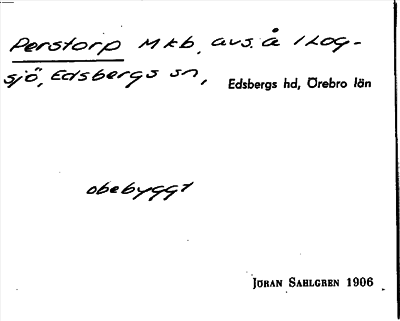 Perstorp Mkb, avs. å 1 Log-
sjö, Edsbergs sn, Edsbergs hd, Örebro län
obebyggt
JÖRAN SAHLGREN 1906